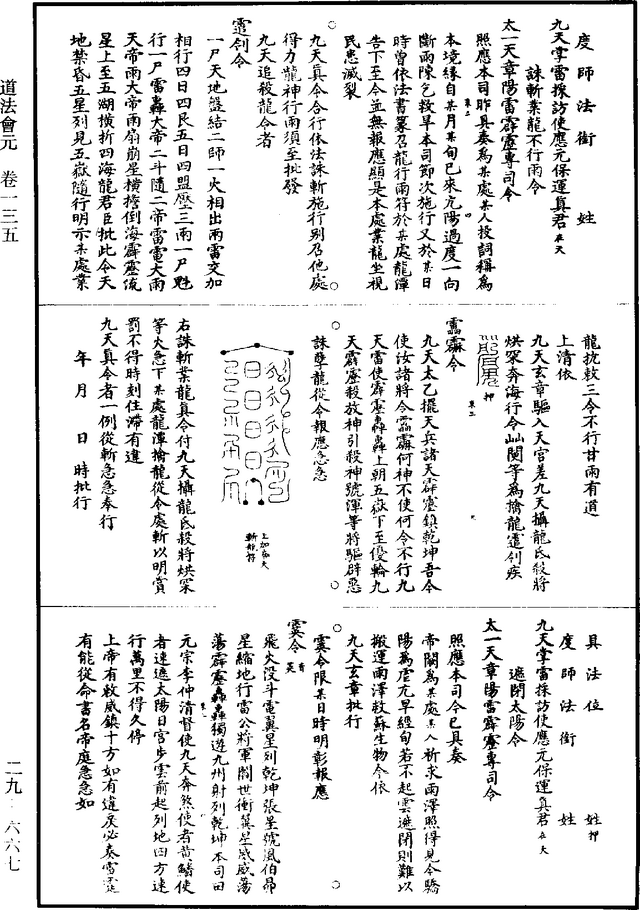 度師法銜　姓
九天掌雷採訪使應元保運真君在天
誅斬業龍不行雨令
太一天章陽雷霹靂專司令
照應本司昨具奏為某處某人投詞稱為
本境緣自某月某旬已來亢陽過度一向
斷雨陳乞救旱本司節次施行又於某日
時曾依法書篆召龍行雨符於某處龍潭
告下至今並無報應顯是本處業龍坐視
民患滅裂
九天真令合行依法誅斬施行別召他處
得力龍神行雨須至批發
九天追殺龍令者
霻刉令
一尸天地盤結二師一火相出雨雷交加
相行四日四艮五日四盟壓三雨一尸魁
行一尸雷轟大帝二斗隨二帝雷電大雨
天帝雨大帝雨扇箭星橫擔倒海霹靂流
星上至五湖橫折四海龍君臣批此令天
地禁昏五星列見五嶽隨行明示某處業
龍抗敕三令不行甘雨有道
上清依
九天玄章驅入天宮差九天攝龍氏殺將
烘罙奔海行令屾閔等為擒龍霻刉疾
押
九天太乙擺天兵諸天霹靂鎮乾坤吾令
使汝諸將令何神不使何令不行九
天雷使霹靂轟轟上朝五嶽下至優輪九
天霹靂殺放神引殺神號渾等將驅辟惡
誅孽龍從令報應急急
上加金火
斬龍符
右誅斬業龍真令付九天攝龍氏殺將烘罙
等火急下某處龍潭擒龍從令處斬以明賞
罰不得時刻住滯有違
九天真令者一例從斬急急奉行
年　月　日　時批行
具法位　姓押
度師法銜　姓
九天掌雷採訪使應元保運真君在天
遮閉太陽令
太一天章陽雷霹靂專司令
照應本司今已具奏
帝闕為某處某人祈求雨澤照得見今驕
陽為虐亢旱經旬若不起雲遮閉則難以
搬運雨澤救蘇生物今依
九天玄章批行
霙令限某日時明彰報應
霙令音英
飛火沒斗電翼星列乾坤張星號風伯昴
星縮地行雷公將軍關世衝箕星威威蕩
蕩霹靂轟轟獨遊九州射列乾坤本司田
元宗李仲清督使九天奔煞使者黃鱔使
者速遮太陽日宮步雲前起列地四方速
行萬里不得久停
上帝有敕威鎮十方如有違戾必奏雷霆
有能從命書名帝庭急急如
道法會元　卷一三五
二九・六六七